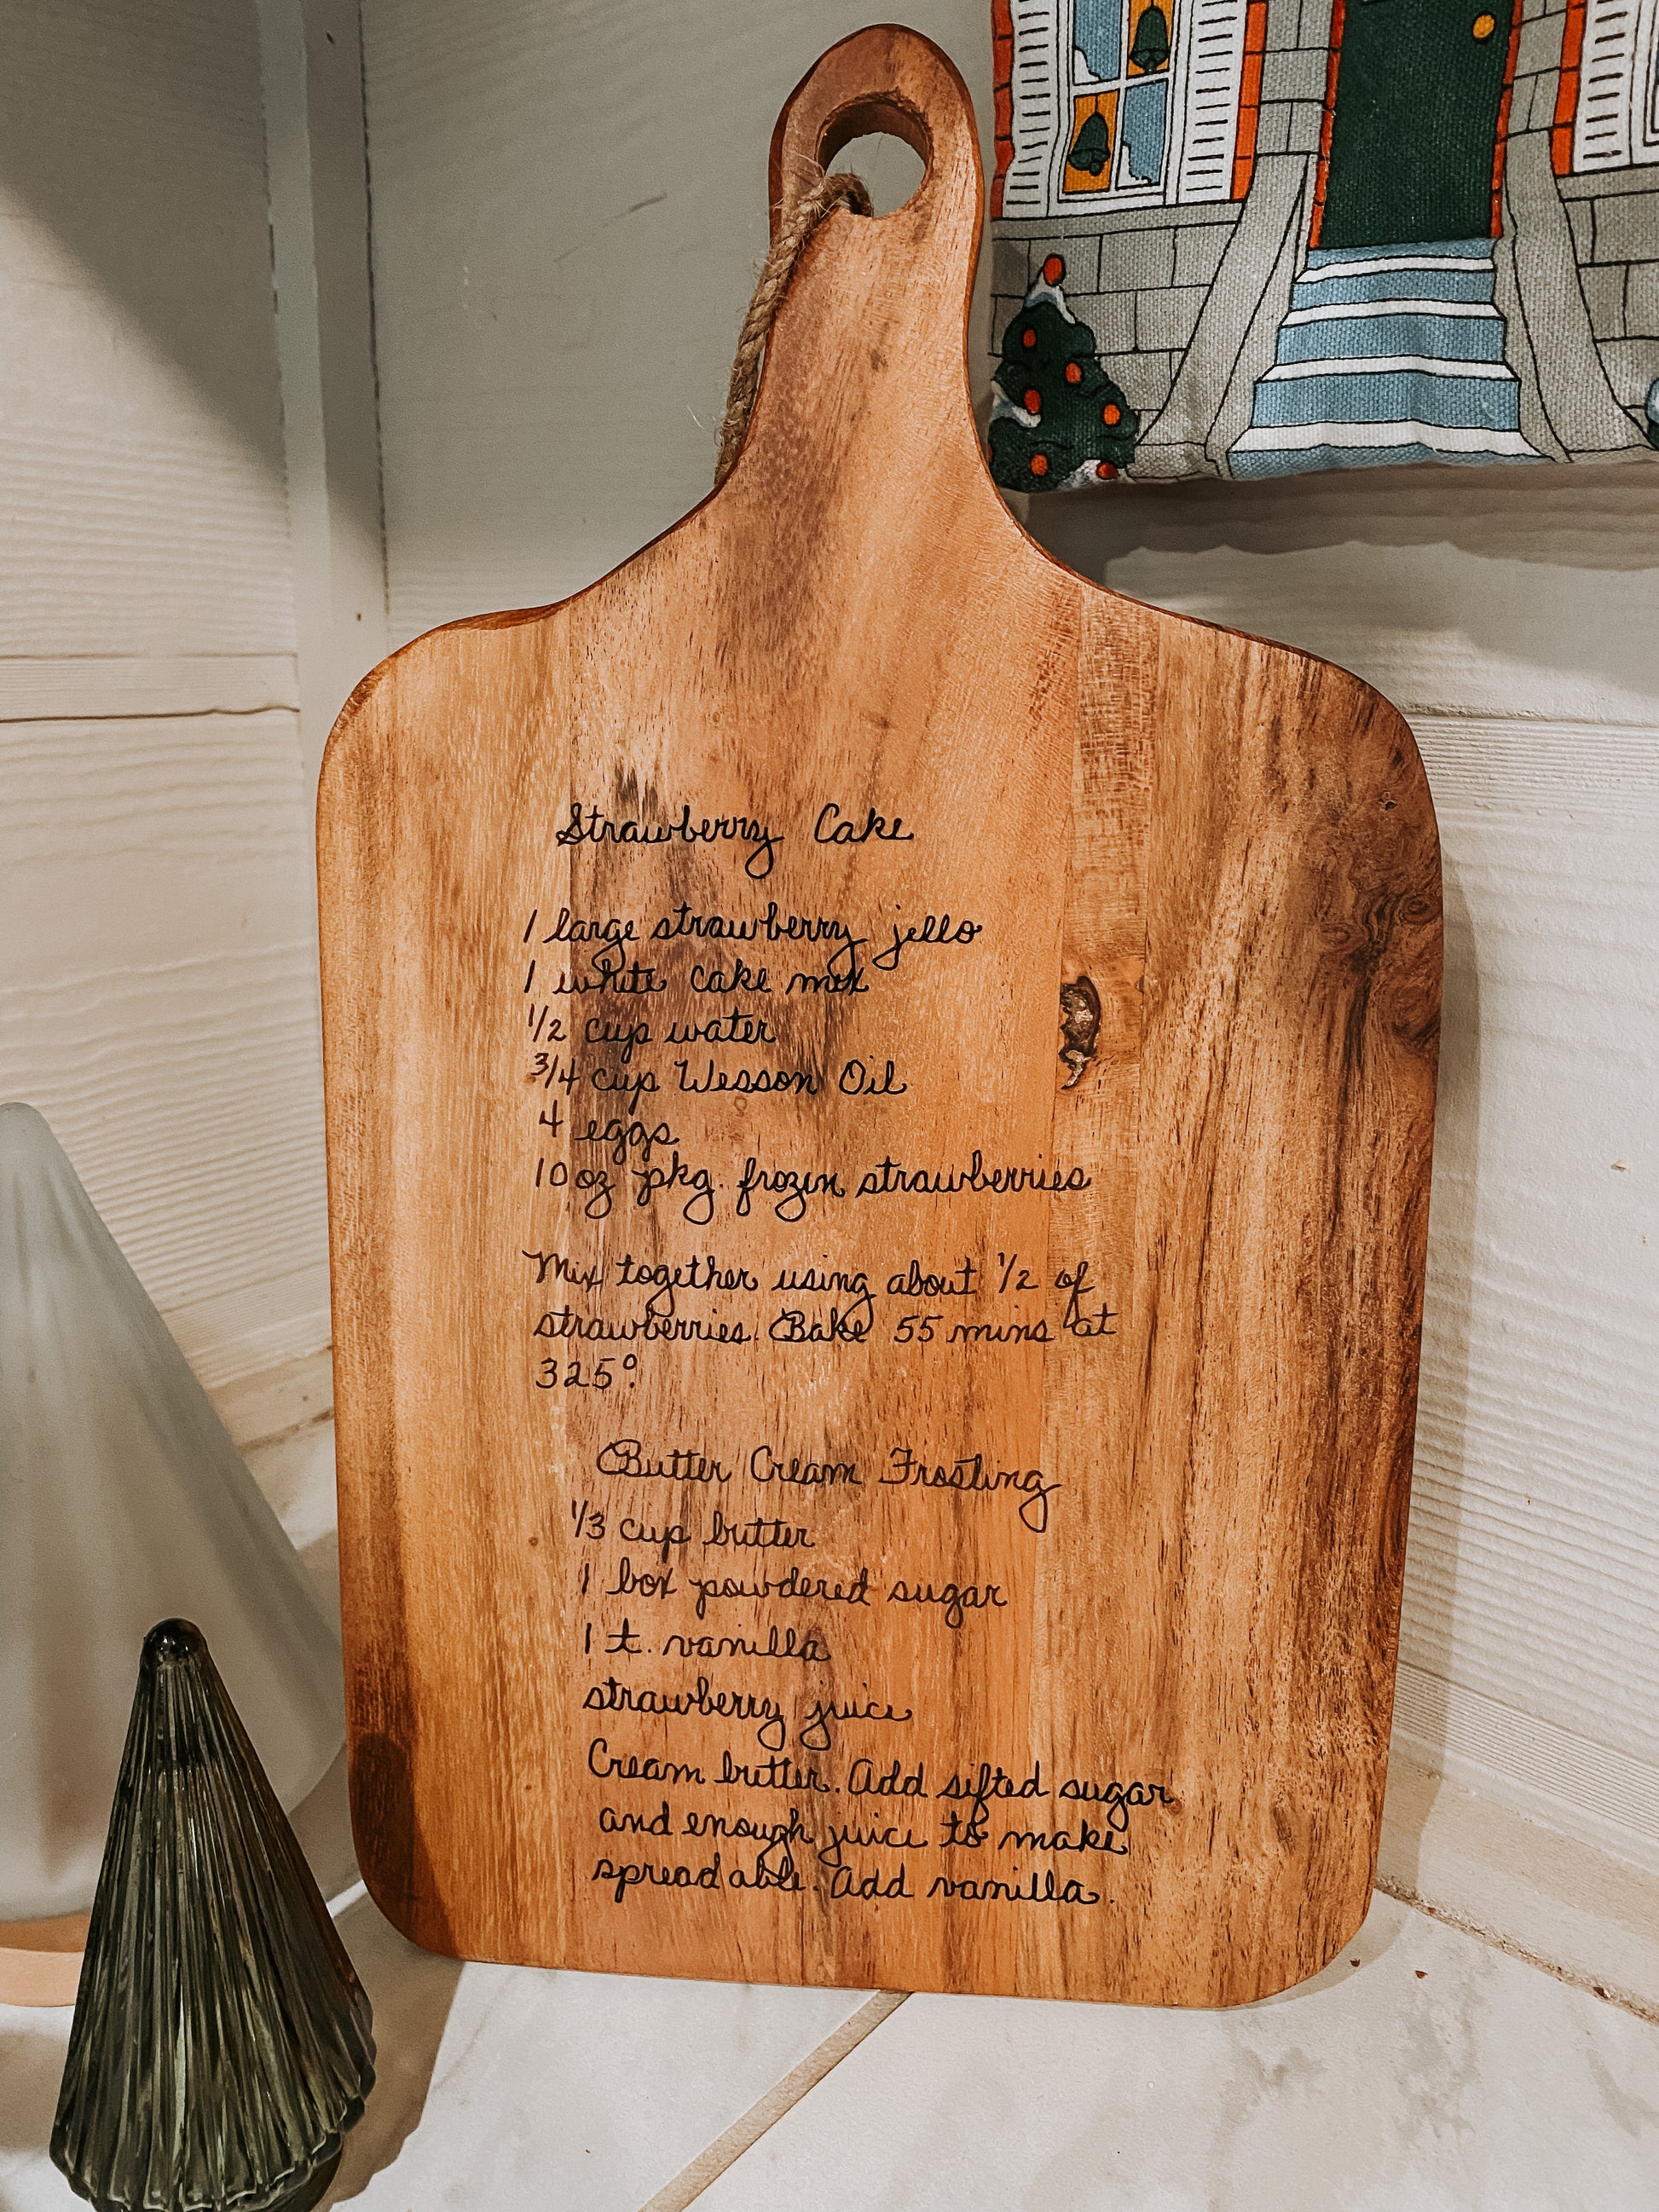 Strawberry Cake
1 large strawberry jello
1 white cake mix
1/2 cup water
3/4 cup Wesson Oil
4 eggs
10 oz pkg. frozen strawberries
Mix together using about 1/2 of
strawberries. Bake 55 mins at
325°.
Butter Cream Frosting
1/3 cup butter
1 box powdered sugar
1 t. vanilla
strawberry juice
Cream butter. Add sifted sugar
and enough juice to make
spreadable. Add vanilla.